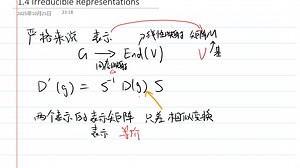 1.4 Irreducible Representations
2025年10月25日 20:18
严格来说 表示 线性映射 矩阵M
G → End(V) V 基
同态映射
D'(g) = S⁻¹ D(g) S
两个表示的表示矩阵 只差 相似变换
表示 等价